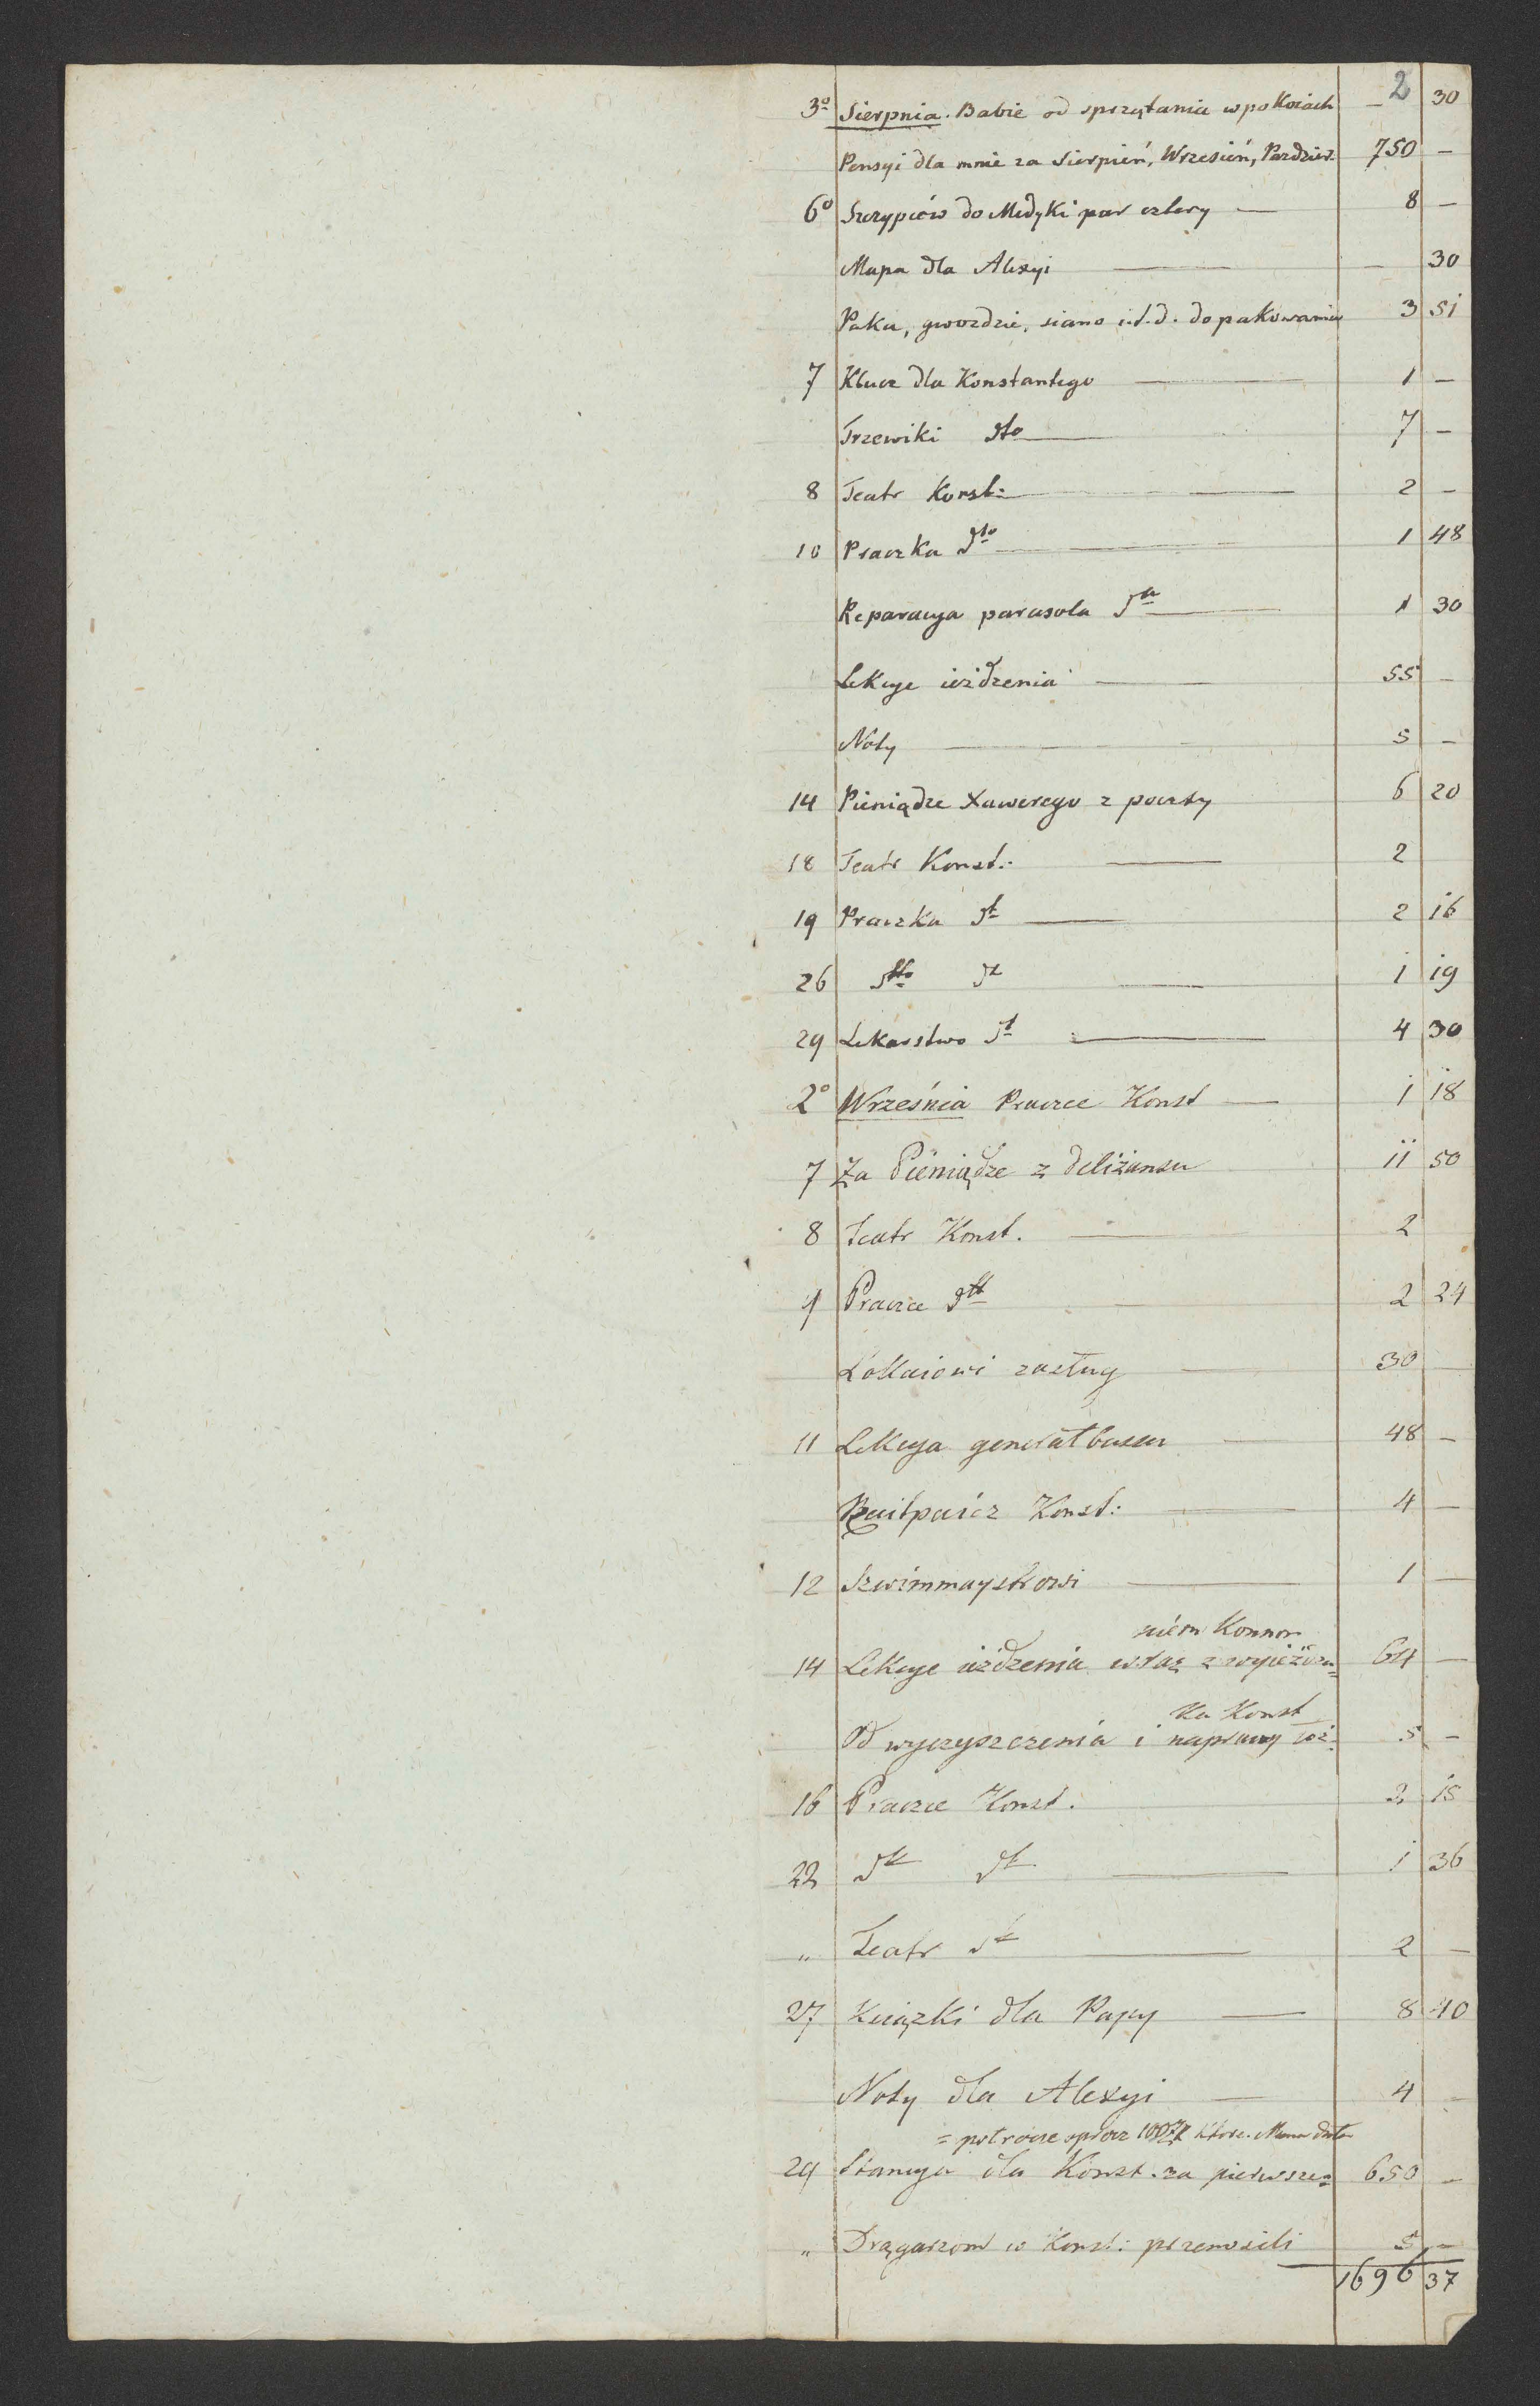 2
3º Sierpnia. Babie od sprzątania w pokoiach — 30
Pensyi dla mnie za Sierpień, Wrzesień, Pazdzier. 750 —
6º Szczypców do Medyki par cztery — 8 —
Mapa dla Alexyi — — 30
Paka, gwozdzie, siano i.t.d. do pakowania 3 51
7 Klucz dla Konstantego — 1 —
Trzewiki dto — 7 —
8 Teatr Konst: — 2 —
10 Praczka dto — 1 48
Reparacya parasola dto — 1 30
Lekcye ieżdzenia — 55 —
Noty — 5 —
14 Pieniądze Xawerego z poczty 6 20
18 Teatr Konst: — 2
19 Praczka dt — 2 16
26 dto dt — 1 19
29 Lekarstwo dt — 4 30
2º Września Pracce Konst — 1 18
7 Za Pieniądze z deliżansu 11 50
8 Teatr Konst. — 2
9 Pracce dtt — 2 24
Lokaiowi zasług — 30 —
11 Lekcya generałbassu — 48 —
Raitpaicz Konst: — 4 —
12 Szwimmaystrowi — 1 —
niém Konnem
14 Lekcye ieżdzenia wraz z wyieżdza= 64 —
ka Konst
Od wyczyszczenia i naprawy łóż= 5 —
16 Pracce Konst. 2 15
22 dt dt — 1 36
„ Teatr dt — 2 —
27 Książki dla Papy — 8 40
Noty dla Alexyi — 4 —
= potrocze oprócz 100 które Mama dała
29 Stancya dla Konst. za pierwsze= 650 —
„ Drągarzom co Konst: przenosili 5 —
1696 37